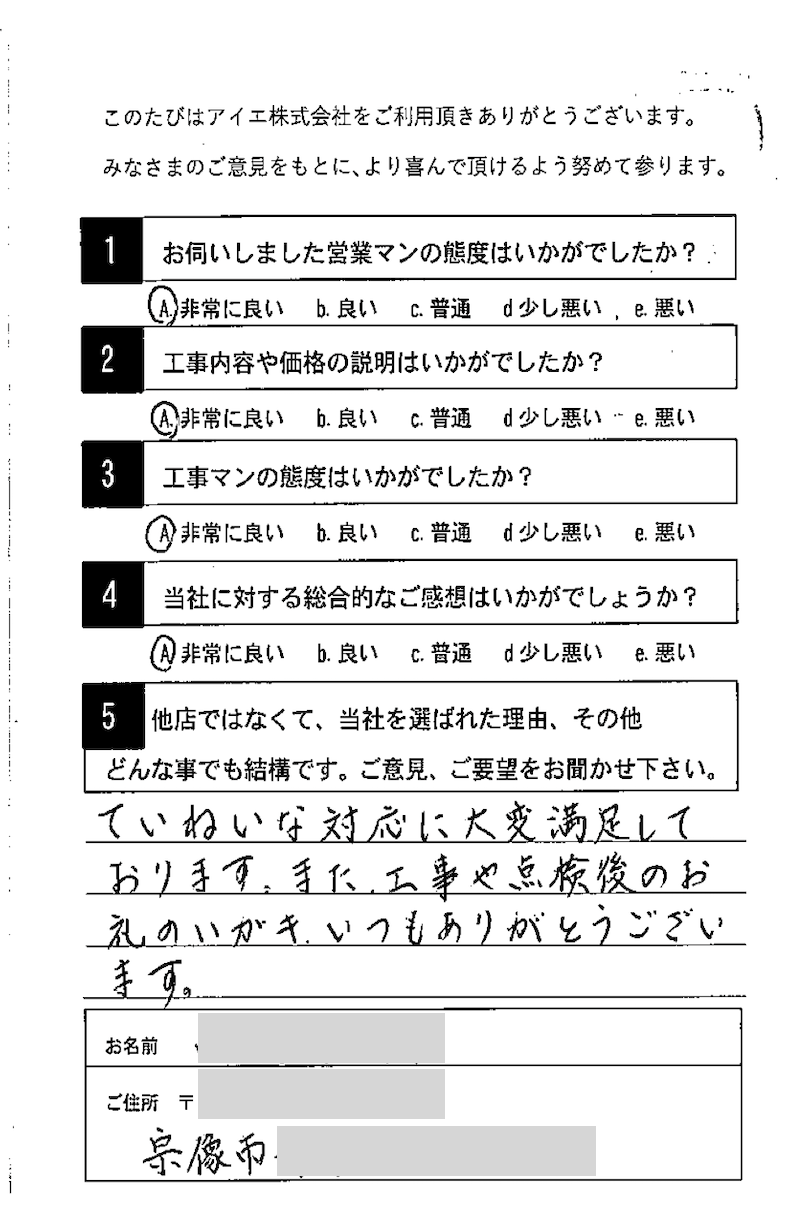 このたびはアイエ株式会社をご利用頂きありがとうございます。
みなさまのご意見をもとに、より喜んで頂けるよう努めて参ります。
1 お伺いしました営業マンの態度はいかがでしたか？
A.非常に良い b.良い c.普通 d少し悪い e.悪い
2 工事内容や価格の説明はいかがでしたか？
A.非常に良い b.良い c.普通 d少し悪い e.悪い
3 工事マンの態度はいかがでしたか？
A非常に良い b.良い c.普通 d少し悪い e.悪い
4 当社に対する総合的なご感想はいかがでしょうか？
A非常に良い b.良い c.普通 d少し悪い e.悪い
5 他店ではなくて、当社を選ばれた理由、その他
どんな事でも結構です。ご意見、ご要望をお聞かせ下さい。
ていねいな対応に大変満足して
おります。また、工事や点検後のお
礼のハガキ、いつもありがとうござい
ます。
お名前
ご住所 〒
宗像市